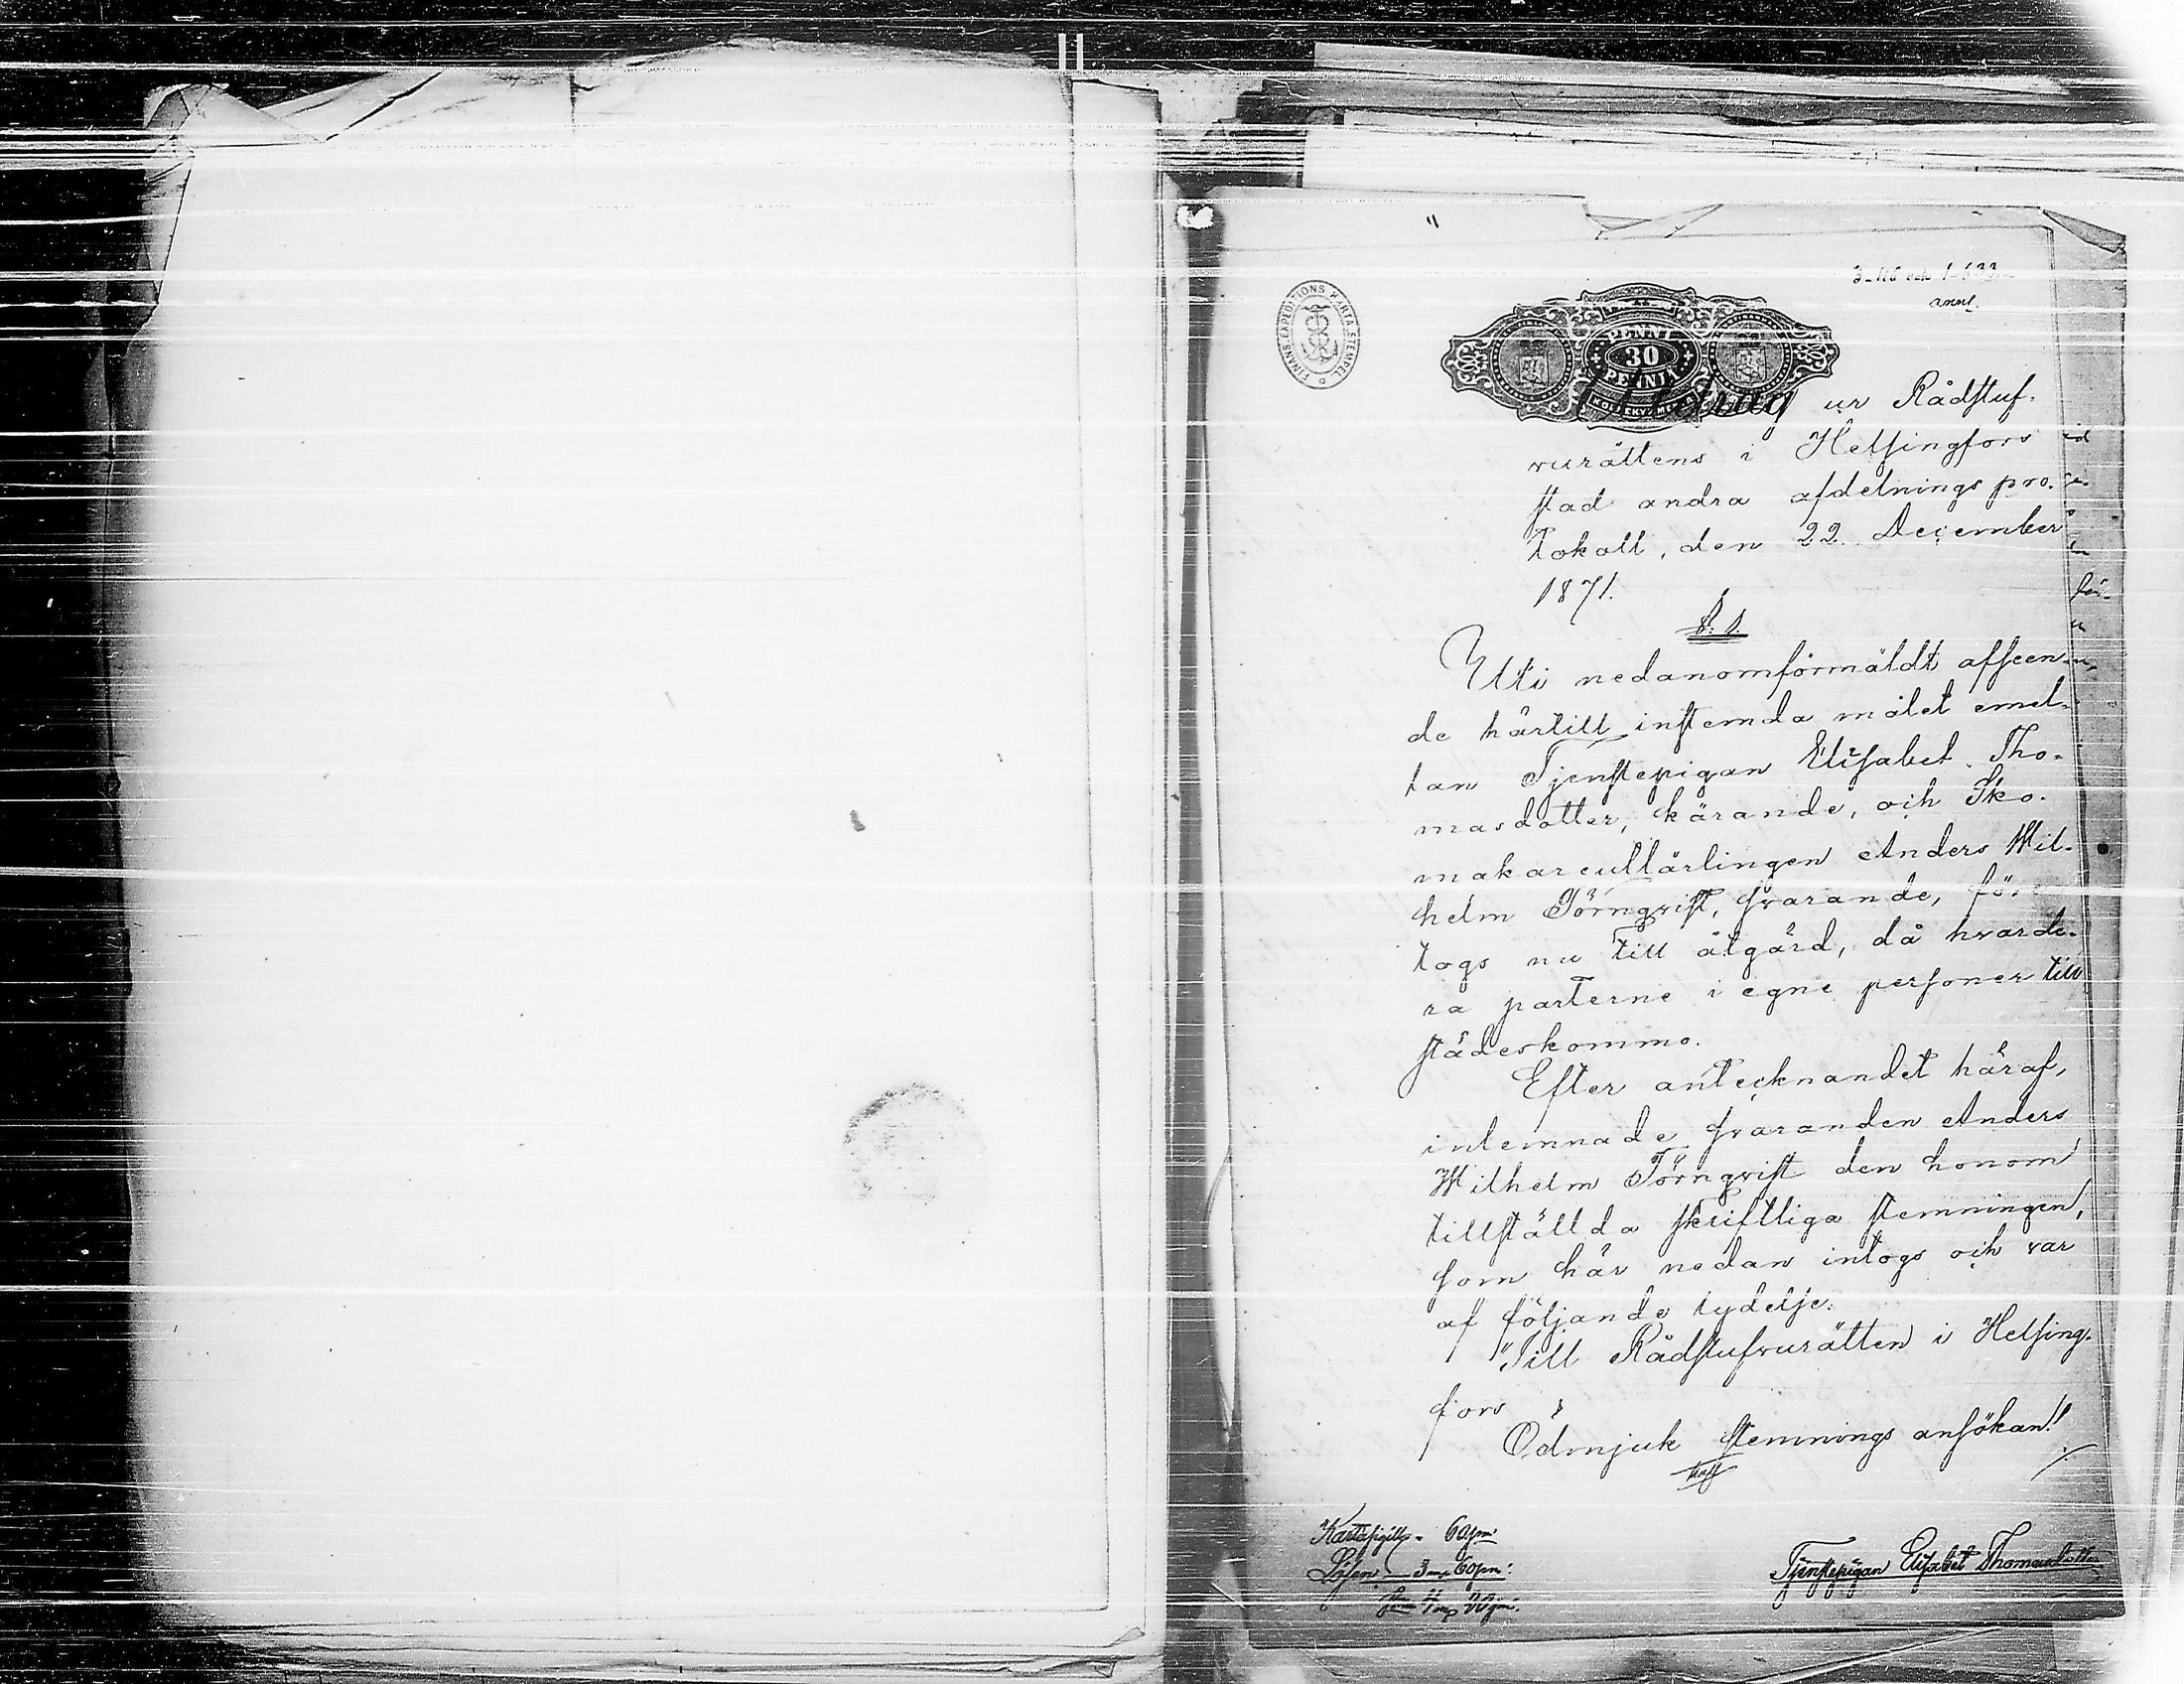 FINANS EXPEDITIONS KARTA STEMPEL
PENNI
30
PENNIÄ
anm.
Utdrag ur Rådstuf-
vurättens i Helsingfors
stad andra afdelnings pro-
tokoll, den 22 December
1871.
§. 1.
Uti nedanomförmäldt afseen-
de härtill instemda målet emel-
lan Tjenstepigan Elisabet Tho-
masdotter, kärande, och Sko-
makareullärlingen Anders Wil-
helm Törnqvist, svarande, före
togs nu till åtgärd, då hvarde-
ra parterne i egne personer till
städeskommo.
Efter antecknandet häraf,
inlemnade svaranden Anders
Wilhelm Törnqvist den honom
tillställda skriftliga stemningen,
som här nedan intogs och var
af följande lydelse:
"Till Rådstufvurätten i Helsing-
fors
Ödmjuk stemnings ansökan!
Kartasigill - 60 pni
Lösen - 3 m 60 pni:
Tjenstepigan Elisabet Thomasdotter